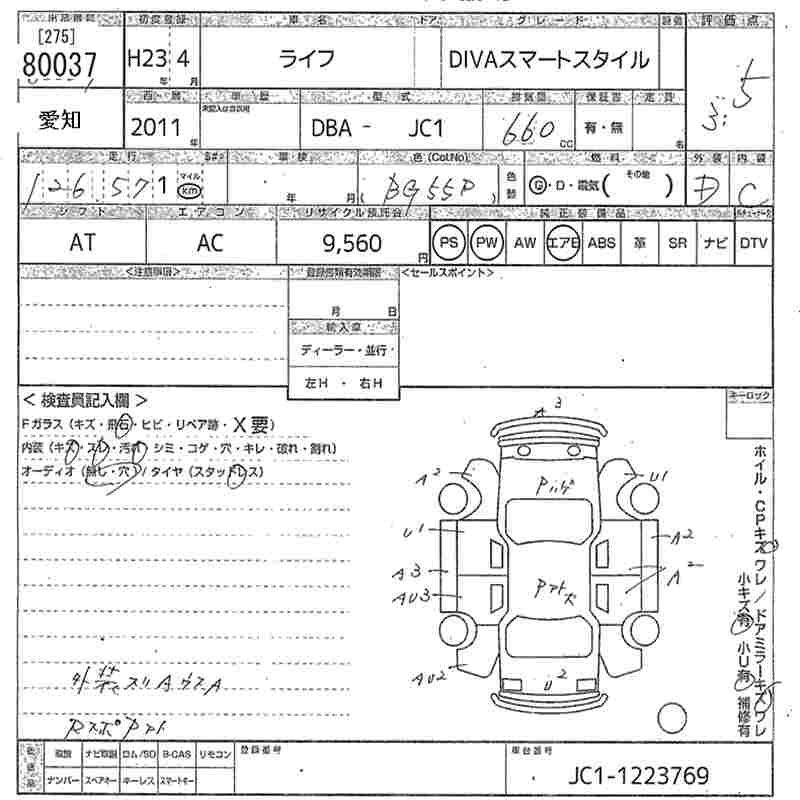 出品番号 初度登録 車名 ドア グレード 評価点
[275]
80037 H23年 4月 ライフ DIVAスマートスタイル 3.5
愛知
車歴 型式 排気量 保証書 定員
2011年 DBA - JC1 660cc 有・無 名
走行 車検 色(Col.No) 色替 燃料 外装 内装
126,571 マイル km 年 月 (BG55P) G・D・電気 その他( ) D C
シフト エアコン リサイクル預託金 純正装備品
AT AC 9,560円 PS PW AW エアB ABS 革 SR ナビ DTV
<注意事項> 登録書類有効期限 <セールスポイント>
月 日
輸入車
ディーラー・並行
左H・右H
<検査員記入欄> キーロック
Fガラス(キズ・飛石・ヒビ・リペア跡・X要)
内装(キズ・スレ・汚れ・シミ・コゲ・穴・キレ・破れ・割れ)
オーディオ(無し・穴)/タイヤ(スタッドレス)
A3
A2 U1
U1 A2
A3 A2
AU3
AU2 U2
ホイル・CPキズワレ/ドアミラーキズワレ
小キズ有 小U有 補修有
外装スリAウスA
取説 ナビ取説 ロム/SD B-CAS リモコン 登録番号 車台番号
ナンバー スペアキー キーレス スマートキー JC1-1223769